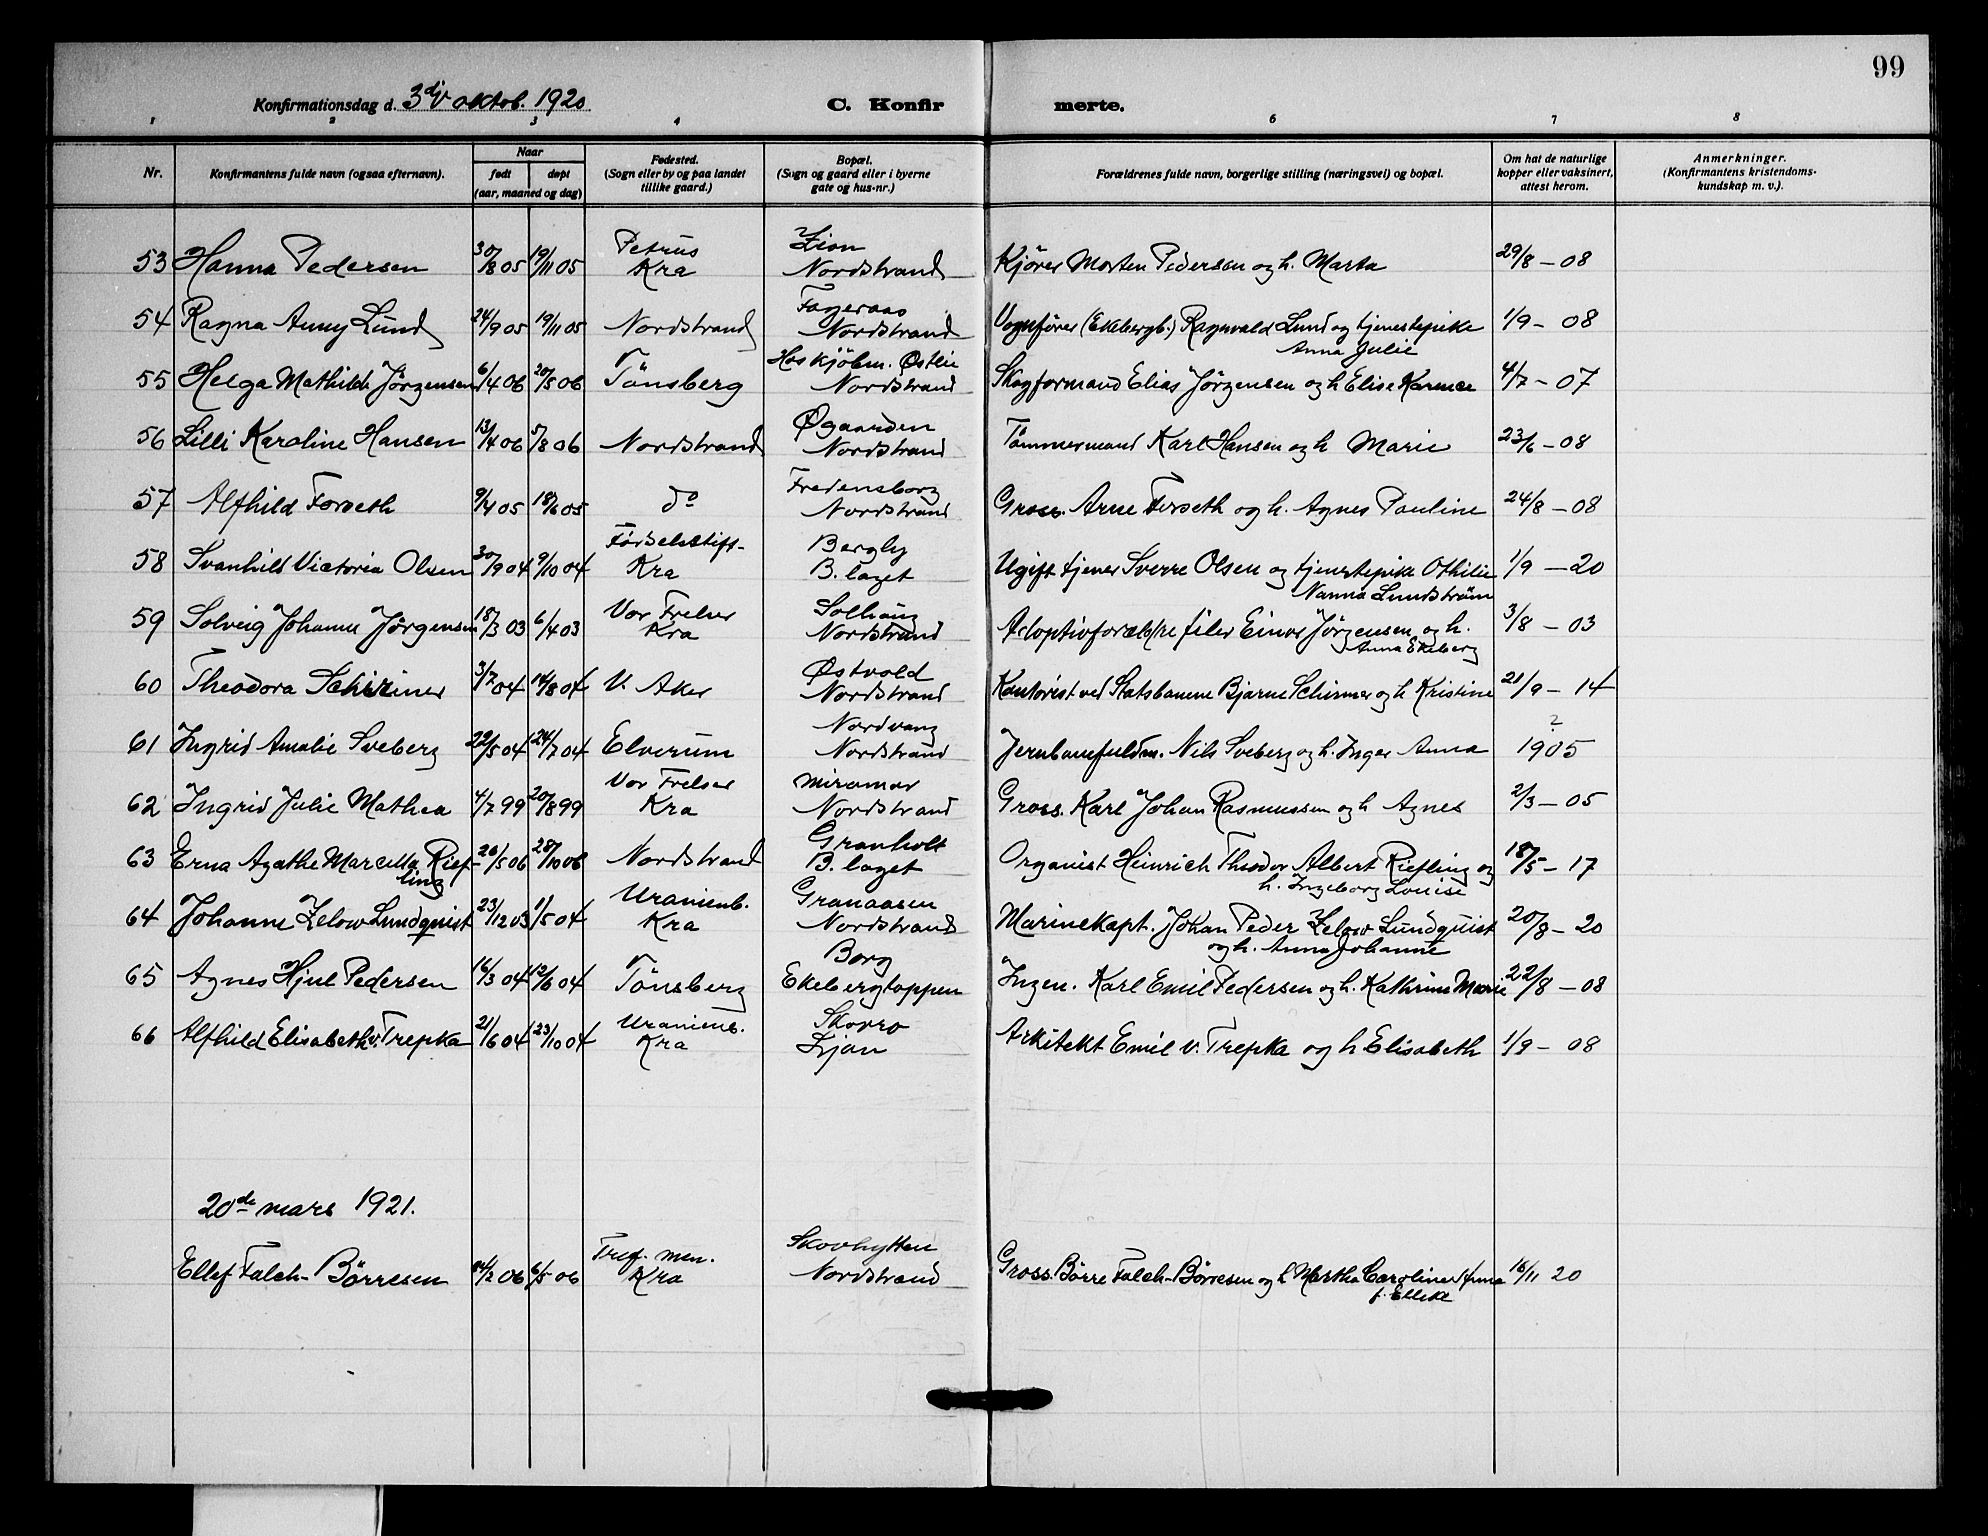 99
Konfirmationsdag d. 3dje oktob. 1920 C. Konfirmerte.
1 2 3 4 6 7 8
Nr. Konfirmantens fulde navn (ogsaa efternavn). Naar født døpt (aar, maaned og dag) Fødested. (Sogn eller by og paa landet tillike gaard.) Bopæl. (Sogn og gaard eller i byerne gate og hus-nr.) Forældrenes fulde navn, borgerlige stilling (næringsvei) og bopæl. Om hat de naturlige kopper eller vaksinert, attest herom. Anmerkninger. (Konfirmantens kristendomskundskap m. v.).
Petrus Zion
53 Hanna Pedersen 30/8 05 19/11 05 Kra Nordstrand Kjörer Morten Pedersen og h. Marta 29/8 - 08
Fageraas
54 Ragna Anny Lund 24/9 05 19/11 05 Nordstrand Nordstrand Vognfører (Ekebergb.) Ragnvald Lund og tjenestepike 1/9 - 08
Anna Julie
Hos kjöbm. Østlie
55 Helga Mathilde Jörgensen 6/4 06 20/5 06 Tönsberg Nordstrand Skogformand Elias Jörgensen og h Elise 4/7 - 07
Øgaarden
56 Lilli Karoline Hansen 13/4 06 5/8 06 Nordstrand Nordstrand Tömmermand Karl Hansen og h Marie 23/6 - 08
Fredensborg
57 Alfhild Forseth 9/4 05 18/6 05 do Nordstrand Gross. Arne Forseth og h. Agnes Pauline 24/8 - 08
Födselsstift- Bergly
58 Svanhild Victoria Olsen 30/9 04 9/10 04 Kra B. laget Ugift tjener Sverre Olsen og tjenestepike Othilie 1/9 - 20
Nanna Lundström
Vor Frelser Solhaug
59 Solveig Johanne Jörgensen 18/3 03 6/4 03 Kra Nordstrand Adoptivforældre filer Einar Jörgensen og h. 3/8 - 03
Anna Ekeberg
Østvold
60 Theodora Schirmer 3/7 04 14/8 04 V. Aker Nordstrand Kontorist ved Statsbanene Bjarne Schirmer og h Kristine 21/9 - 14
Nordvang 2
61 Ingrid Amalie Sveberg 22/5 04 24/7 04 Elverum Nordstrand Jernbanefuldm. Nils Sveberg og h. Inger Anna 1905
Vor Frelser Miramar
62 Ingrid Julie Mathea 4/7 99 20/8 99 Kra Nordstrand Gross. Karl Johan Rasmussen og h Agnes 2/3 - 05
Granholt
63 Erna Agathe Marcella Rief- 26/5 06 28/10 06 Nordstrand B. laget Organist Heinrich Theodor Albert Riefling og 18/5 - 17
ling h. Ingeborg Louise
Uranienb. Granaasen
64 Johanne Zelow Lundquist 23/12 03 1/5 04 Kra Nordstrand Marinekapt. Johan Peder Zelow Lundquist 20/8 - 20
og h. Anna Johanne
Borg
65 Agnes Hjul Pedersen 16/3 04 12/6 04 Tönsberg Ekebergtoppen Ingen. Karl Emil Pedersen og h. Kathrine Marie 22/8 - 08
Uranienb. Skovro
66 Alfhild Elisabeth v. Trepka 21/6 04 23/10 04 Kra Ljan Arkitekt Emil v. Trepka og h Elisabeth 1/9 - 08
20de mars 1921.
Tref. men. Skovhytten
Ellef Falch-Börresen 14/2 06 6/5 06 Kra Nordstrand Gross. Börre Falch-Börresen og h Martha Caroline Anna 16/11 20
f. Ellek